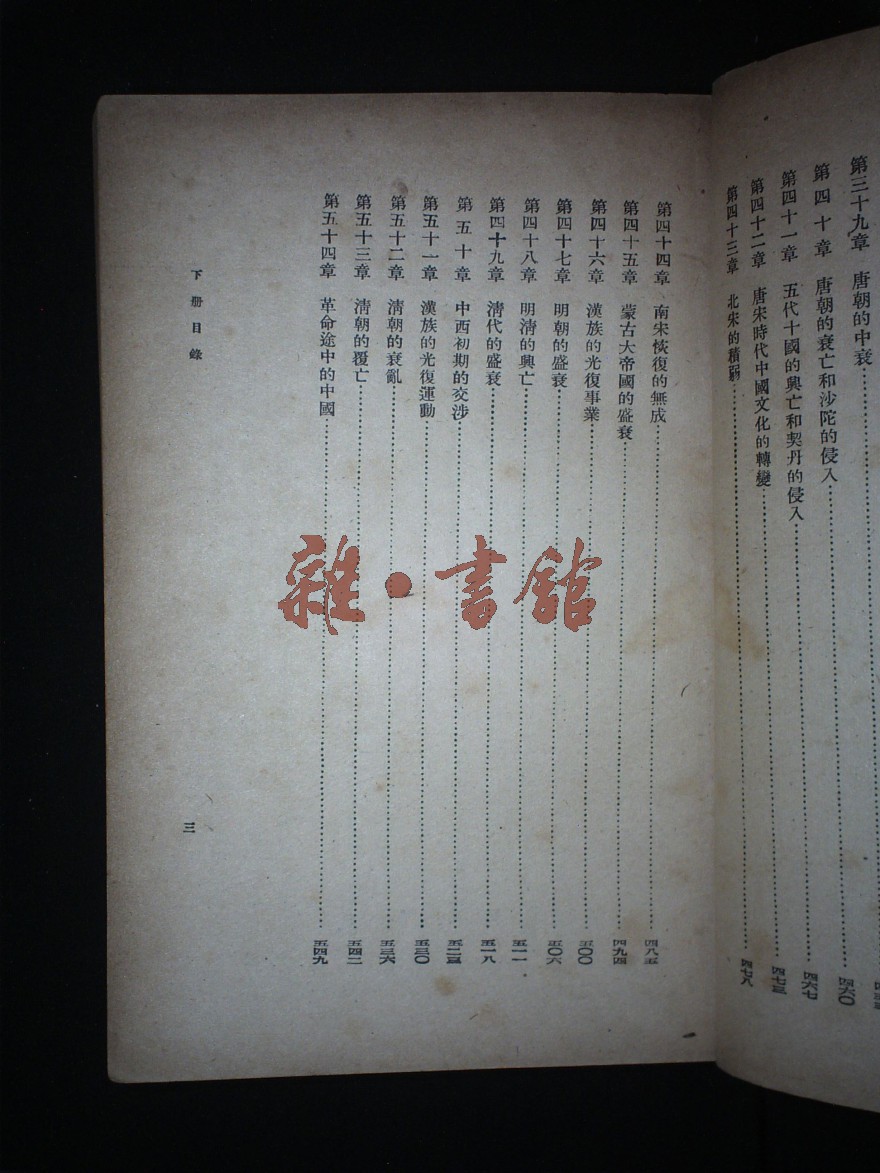 第三十九章 唐朝的中衰
第四十章 唐朝的衰亡和沙陀的侵入……四六〇
第四十一章 五代十國的興亡和契丹的侵入……四六七
第四十二章 唐宋時代中國文化的轉變……四七三
第四十三章 北宋的積弱……四七八
第四十四章 南宋恢復的無成……四八五
第四十五章 蒙古大帝國的盛衰……四九四
第四十六章 漢族的光復事業……五〇〇
第四十七章 明朝的盛衰……五〇六
第四十八章 明清的興亡……五一一
第四十九章 清代的盛衰……五一八
第五十章 中西初期的交涉……五二三
第五十一章 漢族的光復運動……五三〇
第五十二章 清朝的衰亂……五三六
第五十三章 清朝的覆亡……五四二
第五十四章 革命途中的中國……五四九
下册目錄
三
雜·書館